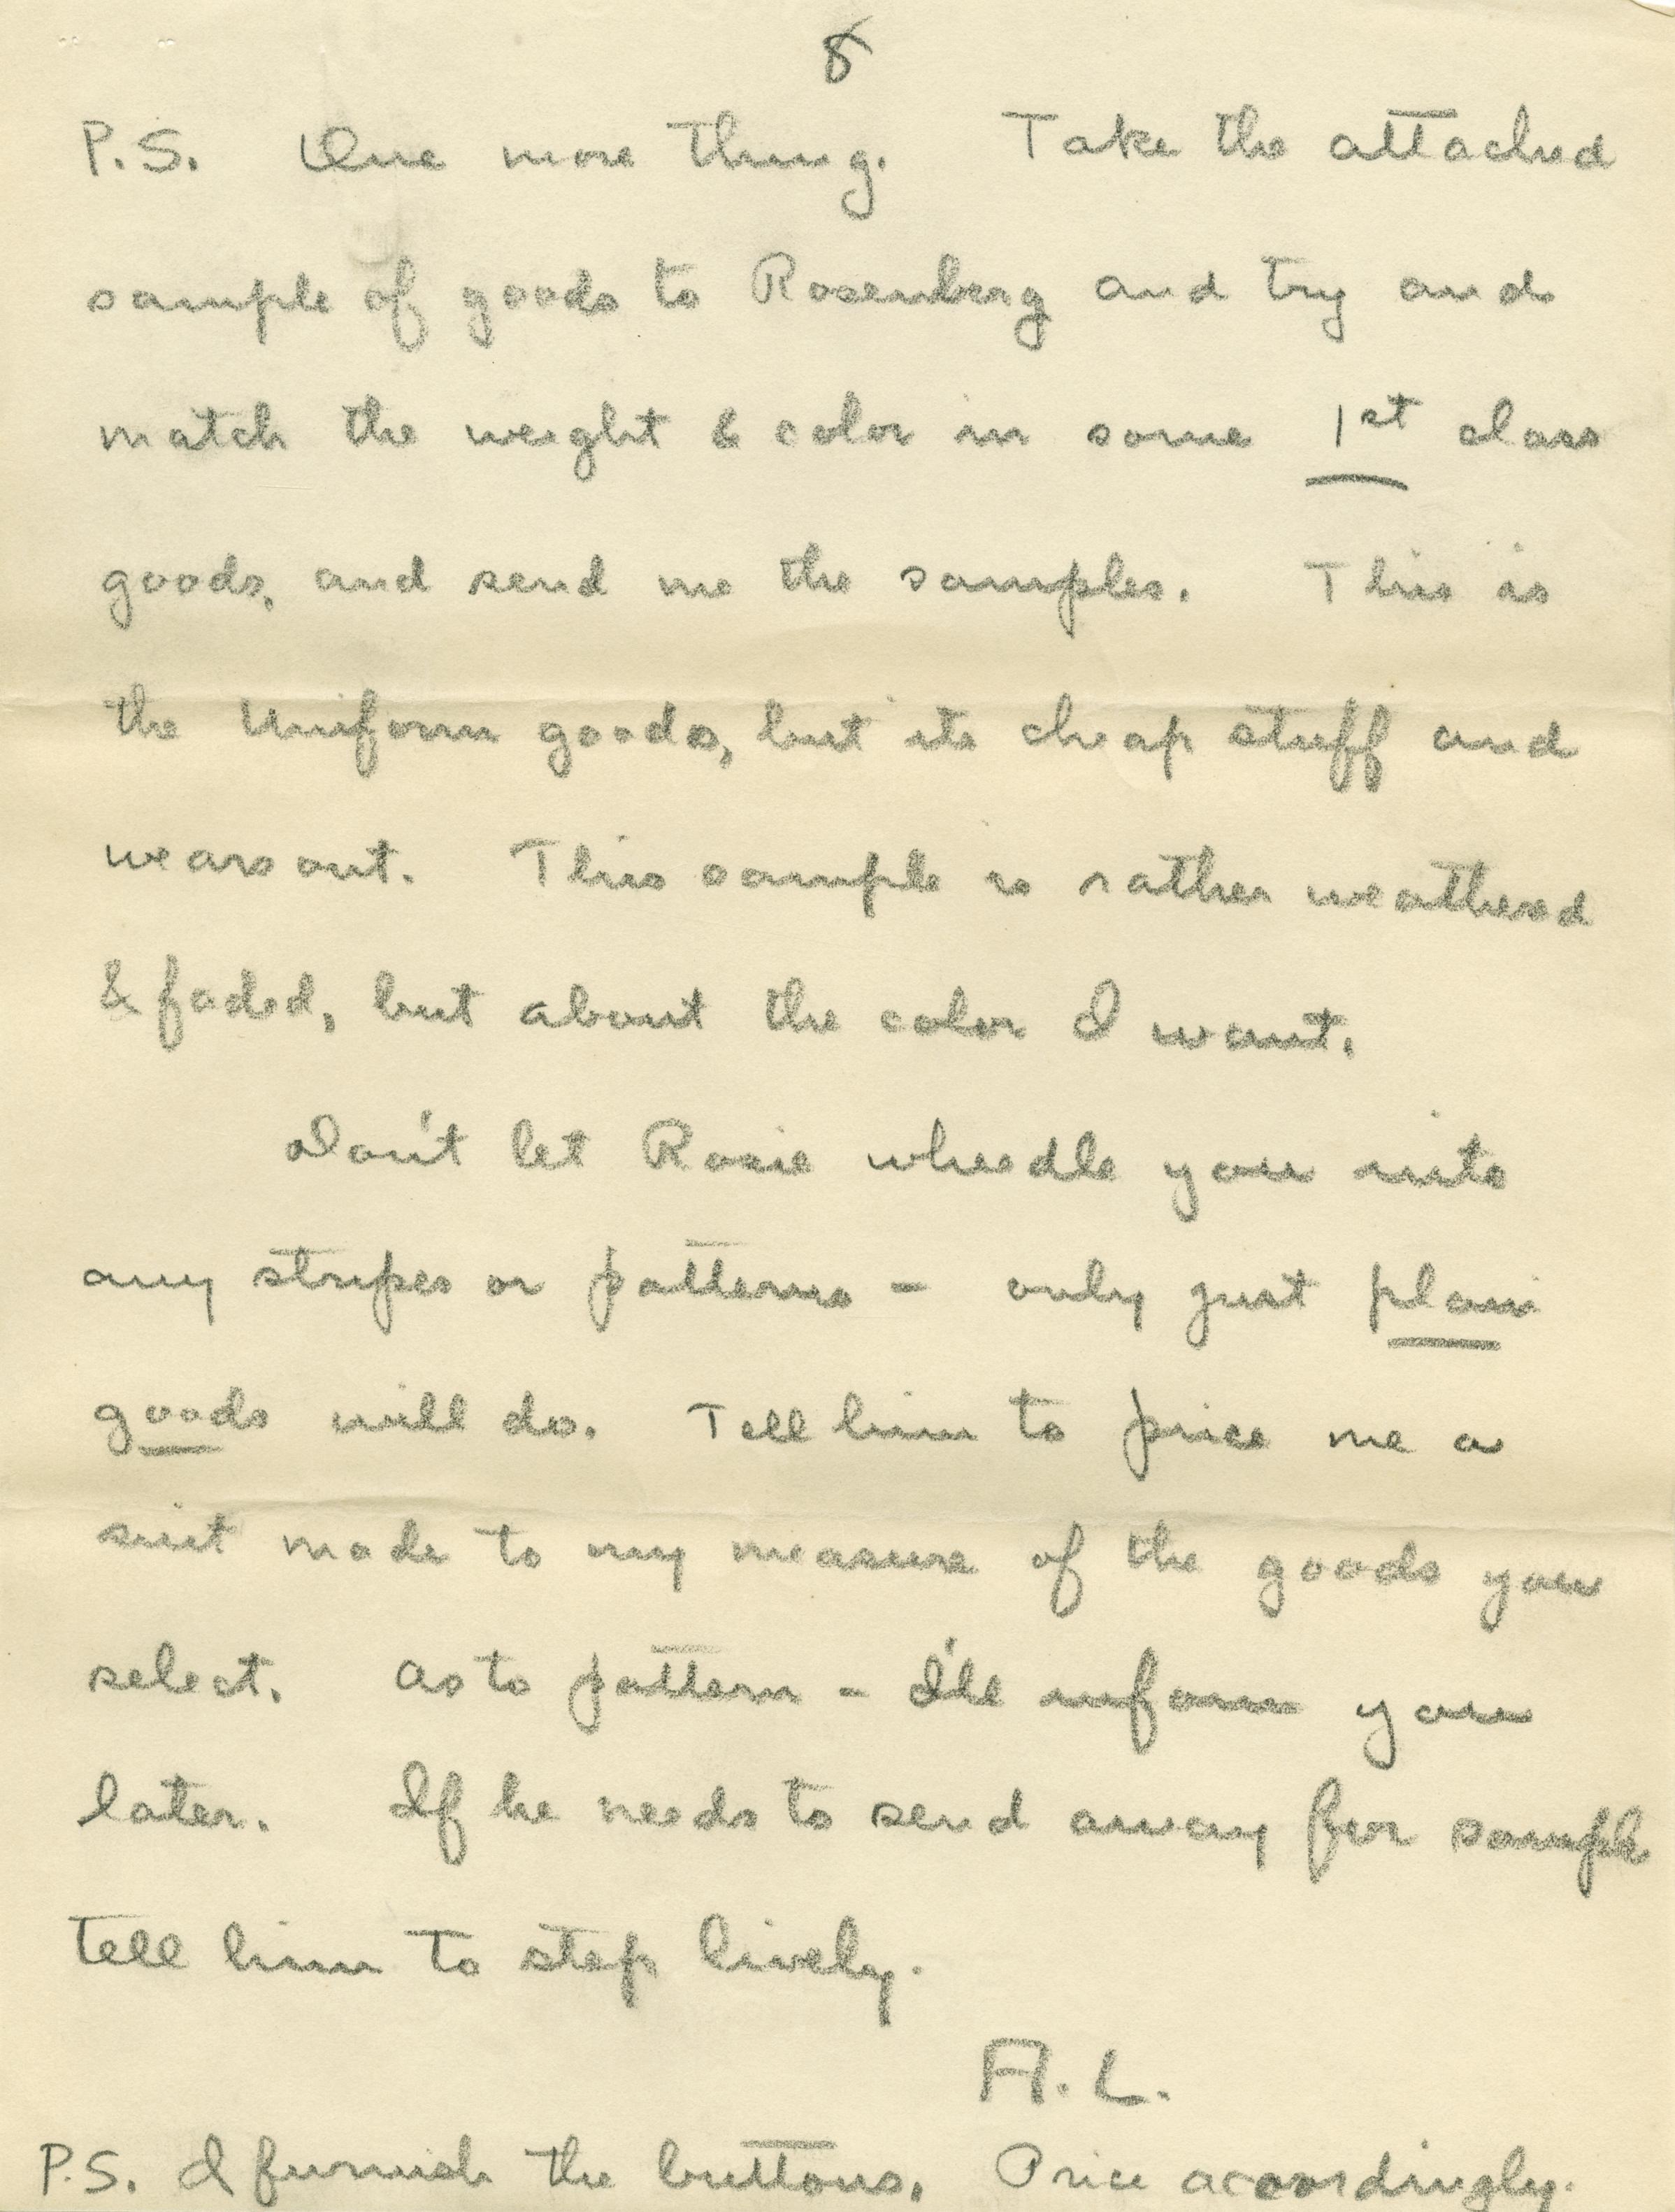 8
P.S. One more thing. Take the attached
sample of goods to Rosenberg and try and
match the weight & color in some 1st class
goods, and send me the samples. This is
the Uniform goods, but its cheap stuff and
wears out. This sample is rather weathered
& faded, but about the color I want.
Don't let Rosie wheedle you into
any stripes or patterns - only just plain
goods will do. Tell him to price me a
suit made to my measure of the goods you
select. As to pattern - I'll inform you
later. If he needs to send away for sample
tell him to step lively.
A.L.
P.S. I furnish the buttons. Price accordingly.